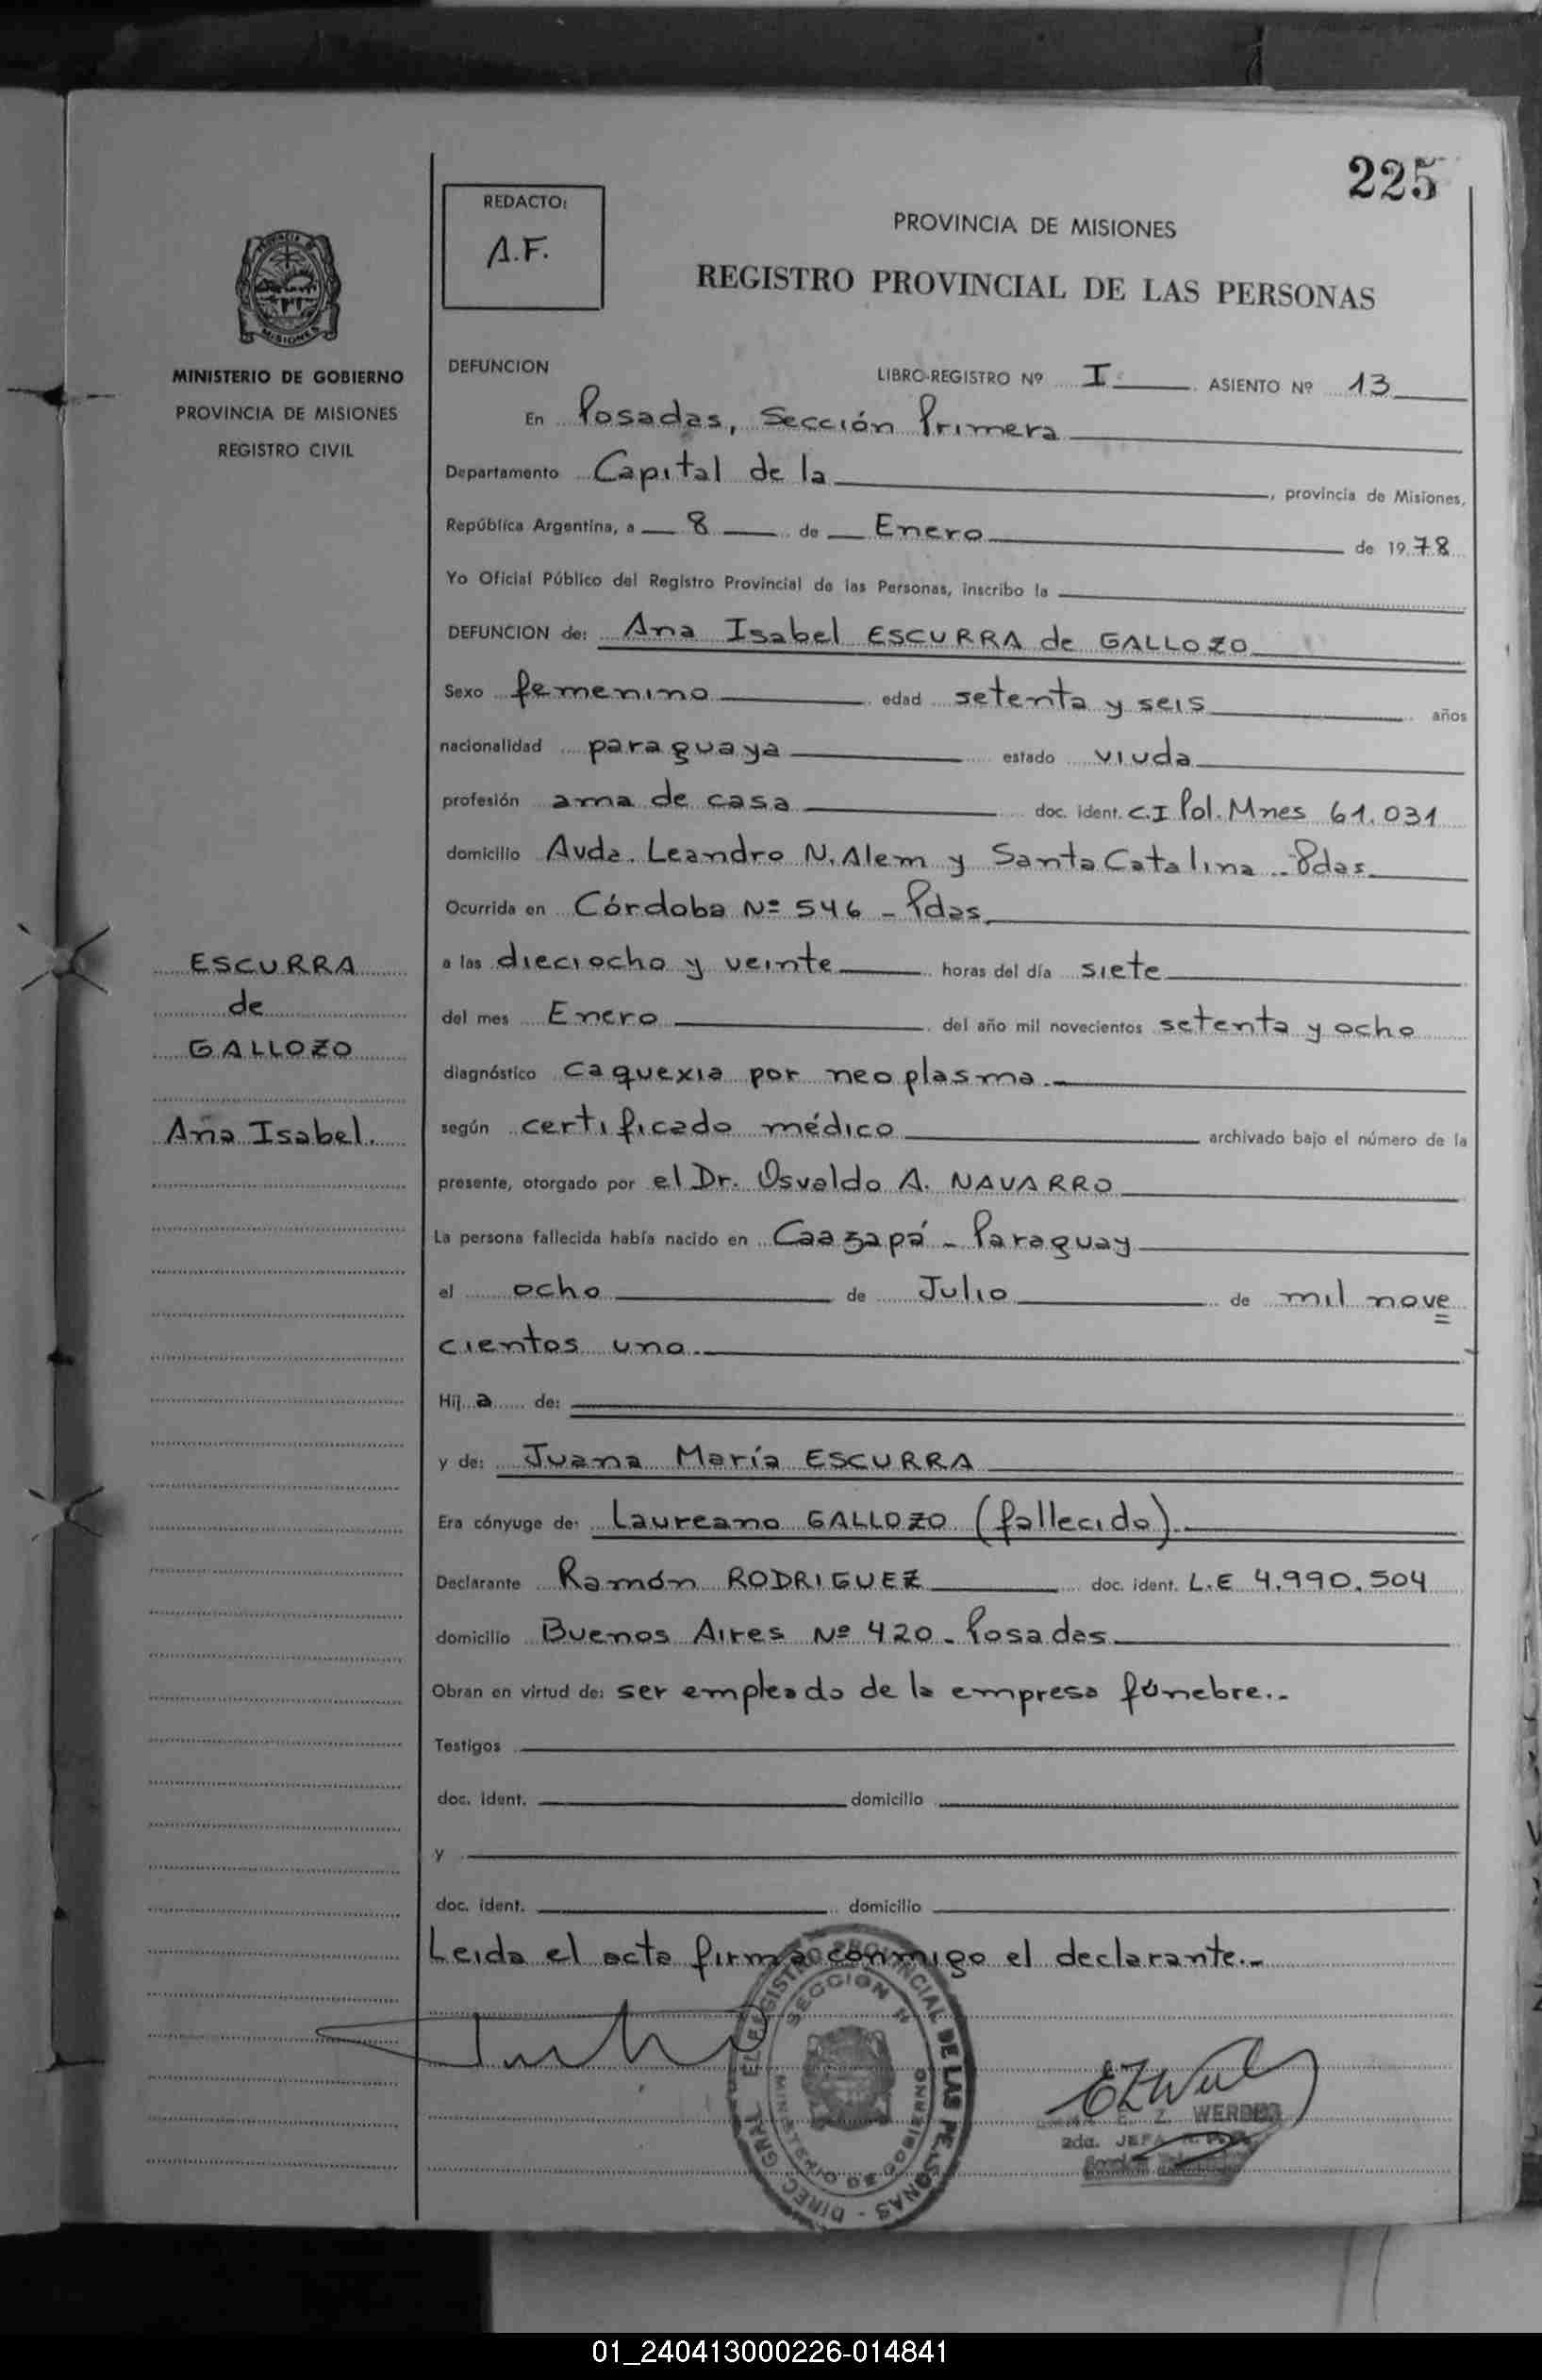 225
REDACTO:
A.F.
PROVINCIA DE MISIONES
REGISTRO PROVINCIAL DE LAS PERSONAS
MISIONES
MINISTERIO DE GOBIERNO
PROVINCIA DE MISIONES
REGISTRO CIVIL
DEFUNCION LIBRO-REGISTRO Nº I ASIENTO Nº 13
En Posadas, Sección Primera
Departamento Capital de la , provincia de Misiones,
República Argentina, a 8 de Enero de 1978
Yo Oficial Público del Registro Provincial de las Personas, inscribo la
DEFUNCION de: Ana Isabel ESCURRA de GALLOZO
Sexo femenino edad setenta y seis años
nacionalidad paraguaya estado viuda
profesión ama de casa doc. ident. C.I Pol. Mnes 61.031
domicilio Avda. Leandro N. Alem y Santa Catalina - Pdas
Ocurrida en Córdoba Nº 546 - Pdas
a las dieciocho y veinte horas del día siete
del mes Enero del año mil novecientos setenta y ocho
diagnóstico caquexia por neoplasma
según certificado médico archivado bajo el número de la
presente, otorgado por el Dr. Osvaldo A. NAVARRO
La persona fallecida había nacido en Caazapá - Paraguay
el ocho de Julio de mil nove
cientos uno
Hij a de:
y de: Juana María ESCURRA
Era cónyuge de: Laureano GALLOZO (fallecido)
Declarante Ramón RODRIGUEZ doc. ident. L.E 4.990.504
domicilio Buenos Aires Nº 420 - Posadas
Obran en virtud de: ser empleado de la empresa fúnebre.-
Testigos
doc. ident. domicilio
y
doc. ident. domicilio
Leida el acta firma conmigo el declarante.-
ESCURRA
de
GALLOZO
Ana Isabel.
DIREC. GRAL. DEL REGISTRO PROVINCIAL DE LAS PERSONAS
SECCION 1ª
MINISTERIO DE GOBIERNO
E. Z. WERDEG
2da. JEFA
01_240413000226-014841